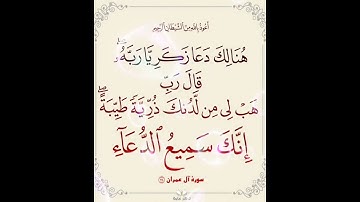 أعوذ بالله من الشيطان الرجيم
هُنَالِكَ دَعَا زَكَرِيَّا رَبَّهُۥ ۖ
قَالَ رَبِّ
هَبْ لِى مِن لَّدُنكَ ذُرِّيَّةً طَيِّبَةً ۖ
إِنَّكَ سَمِيعُ ٱلدُّعَآءِ
سورة آل عمران